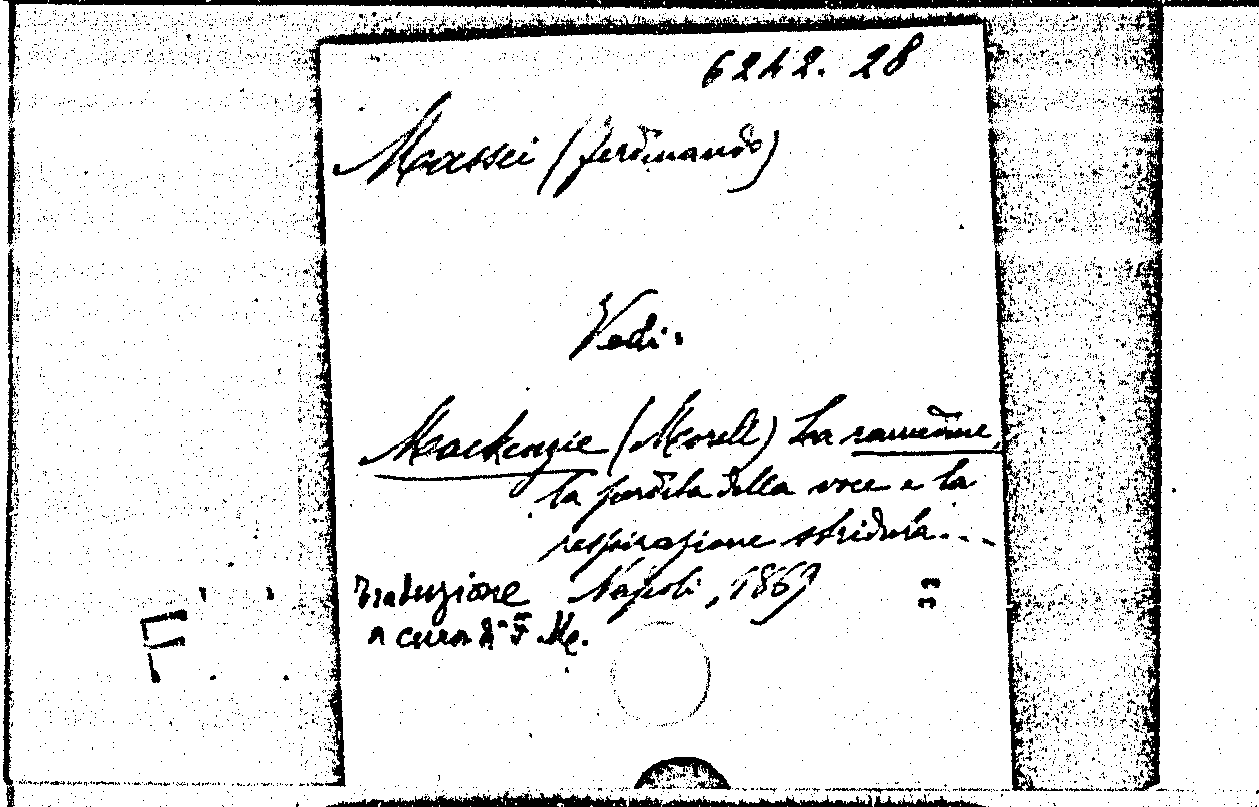 6242. 28
Massei (Ferdinando)
Vedi:
Mackenzie (Morell) La raucedine,
la perdita della voce e la
respirazione stridula...
Traduzione Napoli, 1869
a cura di F. Me.